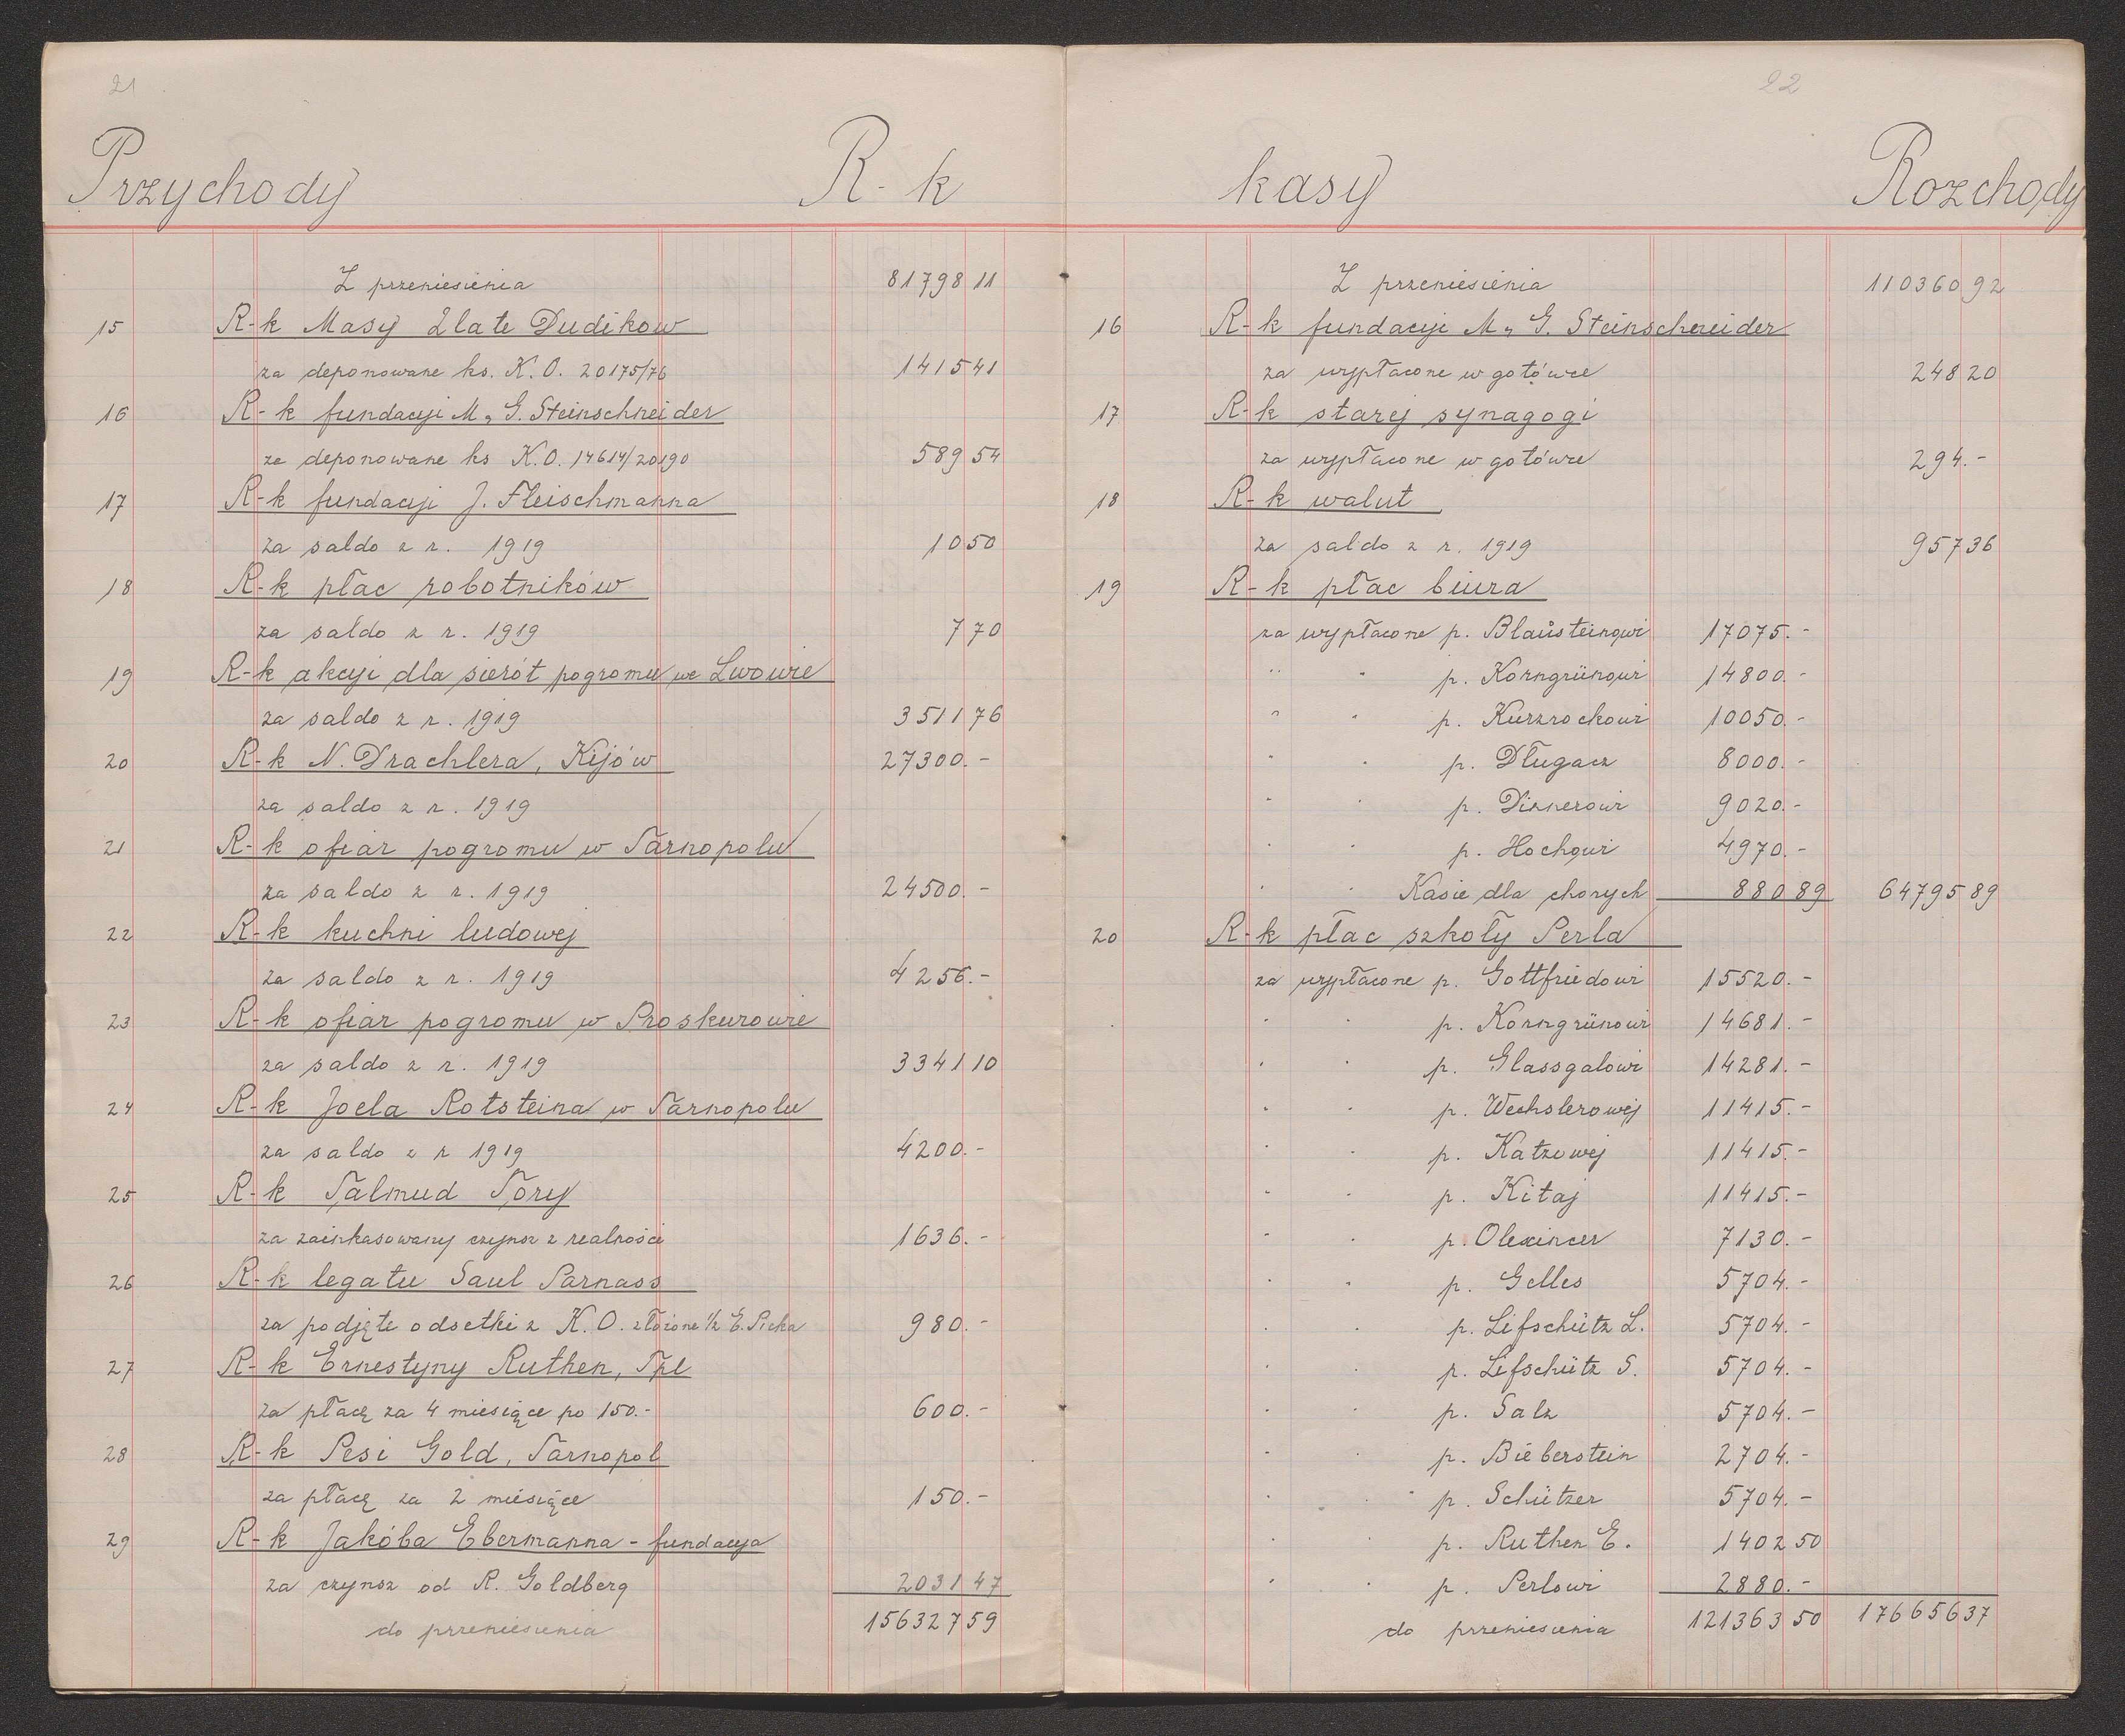 21
Przychody R-k
Z przeniesienia 81798 11
15 R-k Masy Zlate Dudikow
za deponowane ks. K.O. 20175/76 1415 41
16 R-k fundacyi M. G. Steinschneider
za deponowane ks K.O. 14614/20190 589 54
17 R-k fundacyi J. Fleischmanna
za saldo z r. 1919 10 50
18 R-k płac robotników
za saldo z r. 1919 7 70
19 R-k akcyi dla sierót pogromu we Lwowie
za saldo z r. 1919 3511 76
20 R-k N. Drachlera, Kijów 27300.-
za saldo z r. 1919
21 R-k ofiar pogromu w Tarnopolu
za saldo z r. 1919 24500.-
22 R-k kuchni ludowej
za saldo z r. 1919 4256.-
23 R-k ofiar pogromu w Proskurowie
za saldo z r. 1919 3341 10
24 R-k Joela Rotsteina w Tarnopolu
za saldo z r 1919 4200.-
25 R-k Talmud Tory
za zainkasowany czynsz z realności 1636.-
26 R-k legatu Saul Parnass
za podjęte odsetki z K.O. złożone 1/2 E. Picka 980.-
27 R-k Ernestyny Ruthen, Tpl
za płacę za 4 miesiące po 150.- 600.-
28 R-k Pesi Gold, Tarnopol
za płacę za 2 miesiące 150.-
29 R-k Jakóba Ebermanna - fundacya
za czynsz od R. Goldberg 2031 47
do przeniesienia 156327 59
22
kasy Rozchody
Z przeniesienia 110360 92
16 R-k fundacyi M. G. Steinschneider
za wypłacone w gotówce 248 20
17 R-k starej synagogi
za wypłacone w gotówce 294.-
18 R-k walut
za saldo z r. 1919 957 36
19 R-k płac biura
za wypłacone p. Blaústeinowi 17075.-
" " p. Korngrünowi 14800.-
" " p. Kurzrockowi 10050.-
" " p. Długacz 8000.-
" " p. Dinnerowi 9020.-
" " p. Hochowi 4970.-
" " Kasie dla chorych 880 89 64795 89
20 R-k płac szkoły Perla
za wypłacone p. Gottfriedowi 15520.-
" " p. Korngrünowi 14681.-
" " p. Glassgalowi 14281.-
" " p. Wechslerowej 11415.-
" " p. Katzowej 11415.-
" " p. Kitaj 11415.-
" " p. Olexincer 7130.-
" " p. Gelles 5704.-
" " p. Lifschütz L. 5704.-
" " p. Lifschütz S. 5704.-
" " p. Salz 5704.-
" " p. Bieberstein 2704.-
" " p. Schützer 5704.-
" " p. Ruthen E. 1402 50
" " p. Perlowi 2880.-
do przeniesienia 121363 50 176656 37